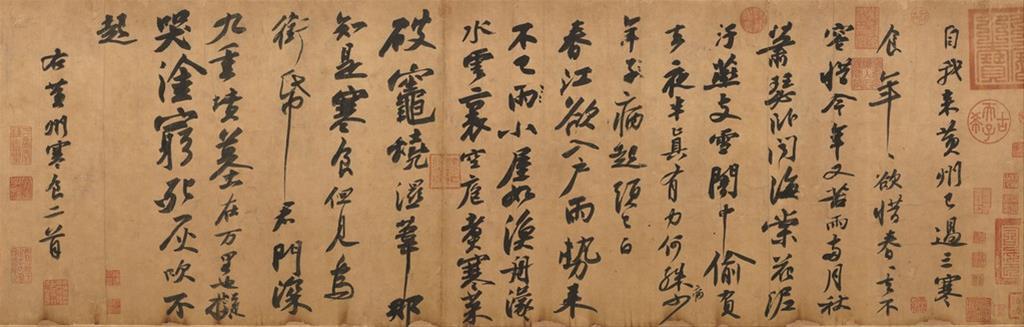 自我来黄州已過三寒
食年〻欲惜春〻去不
容惜今年又苦雨兩月秋
蕭瑟卧聞海棠花泥
汙燕支雪闇中偷負
去夜半真有力何殊少病
年子病起須已白
春江欲入户雨勢来
不已雨小屋如漁舟濛〻
水雲裏空庖煑寒菜
破竈燒濕葦那
知是寒食但見烏
銜帋君門深
九重墳墓在万里也擬
哭塗窮死灰吹不
起
右黄州寒食二首
古希天子